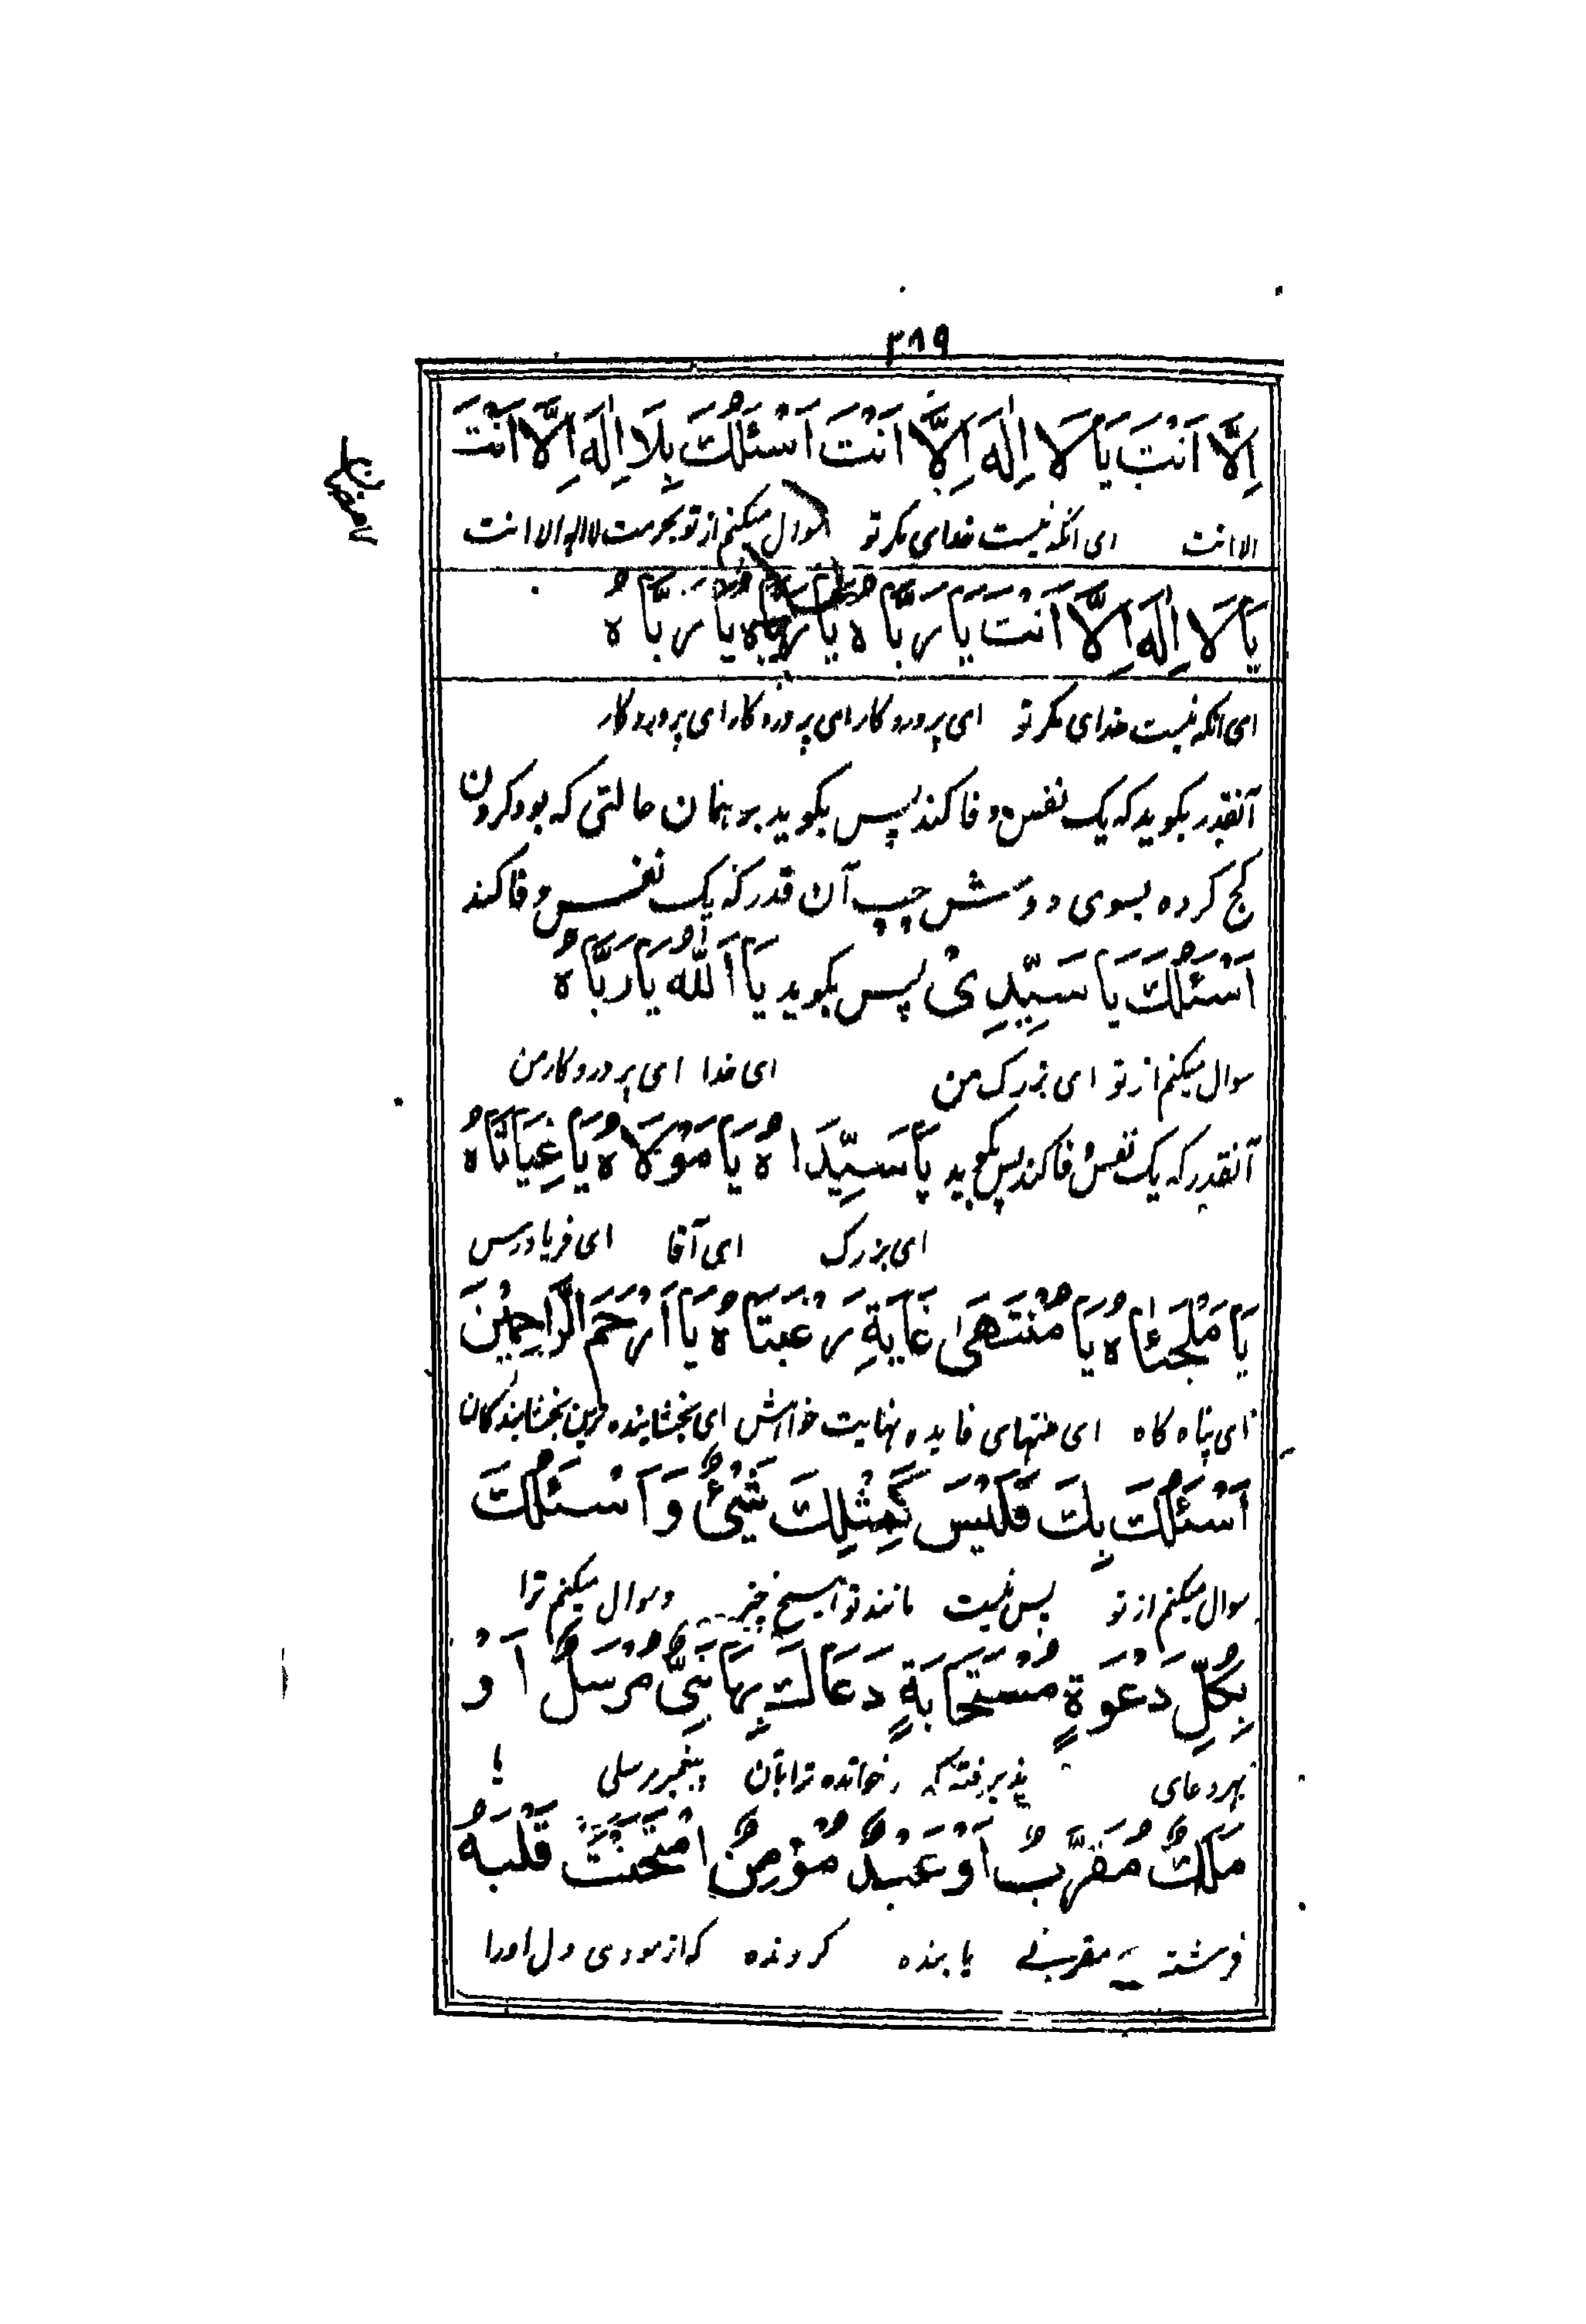 ٣٨٩
اِلَّا اَنْتَ يَا لَا اِلٰهَ اِلَّا اَنْتَ اَسْئَلُكَ بِلَا اِلٰهَ اِلَّا اَنْتَ
الا انت ای انکه نیست خدای مکر تو سوال میکنم از تو بحرمت لا اله الا انت
يَا لَا اِلٰهَ اِلَّا اَنْتَ يَا رَبَّاهُ يَا رَبَّاهُ يَا رَبَّاهُ
ای انکه نیست خدای مکر تو ای پروردکار ای پروردکار ای پروردکار
آنقدر بکوید که یک نفس وفا کند پس بکوید بر همان حالتی که بود کردن
کج کرده بسوی دوش چپ آن قدر که یک نفس وفا کند
اَسْئَلُكَ يَا سَيِّدِیْ پس بکوید يَا اَللّٰهُ يَا رَبَّاهُ
سوال میکنم از تو ای بزرک من ای خدا ای پروردکار من
آنقدر که یک نفس وفا کند پس بکوید يَا سَيِّدَاهُ يَا مَوْلَاهُ يَا غِيَاثَاهُ
ای بزرک ای آقا ای فریادرس
يَا مَلْجَئَاهُ يَا مُنْتَهَىٰ غَايَةِ رَغْبَتَاهُ يَا اَرْحَمَ الرَّاحِمِيْنَ
ای پناه کاه ای منتهای فایده نهایت خواهش ای بخشاینده ترین بخشایندکان
اَسْئَلُكَ بِكَ فَلَيْسَ كَمِثْلِكَ شَیْئٌ وَ اَسْئَلُكَ
سوال میکنم از تو پس نیست مانند تو هیچ چیز و سوال میکنم ترا
بِكُلِّ دَعْوَةٍ مُسْتَجَابَةٍ دَعَاكَ بِهَا نَبِیٌّ مُرْسَلٌ اَوْ
بهر دعای پذیرفته که خوانده ترا بآن پیغمبر مرسلی یا
مَلَكٌ مُقَرَّبٌ اَوْ عَبْدٌ مُؤْمِنٌ امْتَحَنْتَ قَلْبَهُ
فرشته مقربی یا بنده کرونده که ازمودی دل اورا